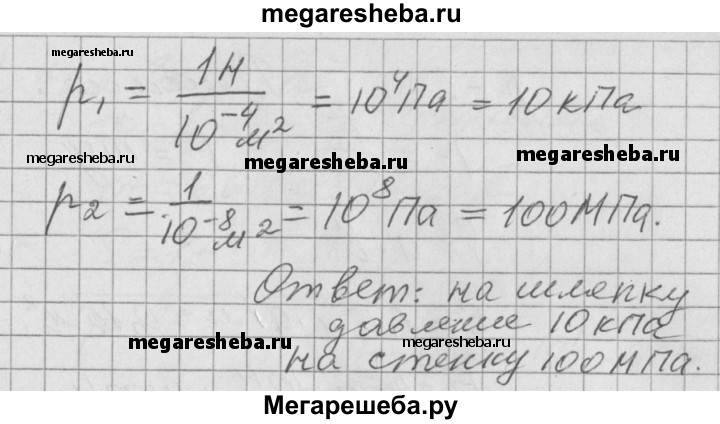 megaresheba.ru
megaresheba.ru
p₁ = 1Н / 10⁻⁴ м² = 10⁴ Па = 10 кПа
megaresheba.ru
megaresheba.ru
megaresheba.ru
p₂ = 1 / 10⁻⁸ м² = 10⁸ Па = 100 МПа.
Ответ: на шляпку
давление 10 кПа
megaresheba.ru
megaresheba.ru
на стенку 100 МПа.
Мегарешеба.ру